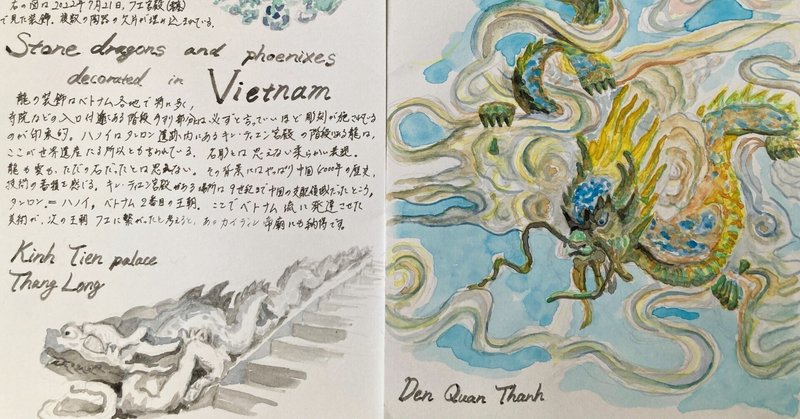 右の図は2022年7月21日、フエ宮殿(
で見た装飾。複数の陶器の欠片が埋め込まれている。
Stone dragons and phoenixes
decorated in Vietnam
龍の装飾はベトナム各地で
寺院などの入口付近にある階段の手すり部分には必ずと言っていいほど彫刻が施されている
のが印象的。ハノイはタンロン遺跡内にあるキン・ティエン宮殿の階段にある龍は、
ここが世界遺産たる所以とも言われている。石彫とは思えない柔らかい表現。
龍も雲も、ただの石だったとは思えない。その背景にはやっぱり中国4000年の歴史、
技術の蓄積を感じる。キン・ティエン宮殿がある場所は9世紀まで中国の支配領域だったところ。
タンロン=ハノイ。ベトナム2番目の王朝。ここでベトナム流に発達させた
美術が、次の王朝フエに繋がったと考えると、あのカイディン帝廟にも納得です。
Kinh Tien palace
Thang Long
Den Quan Thanh